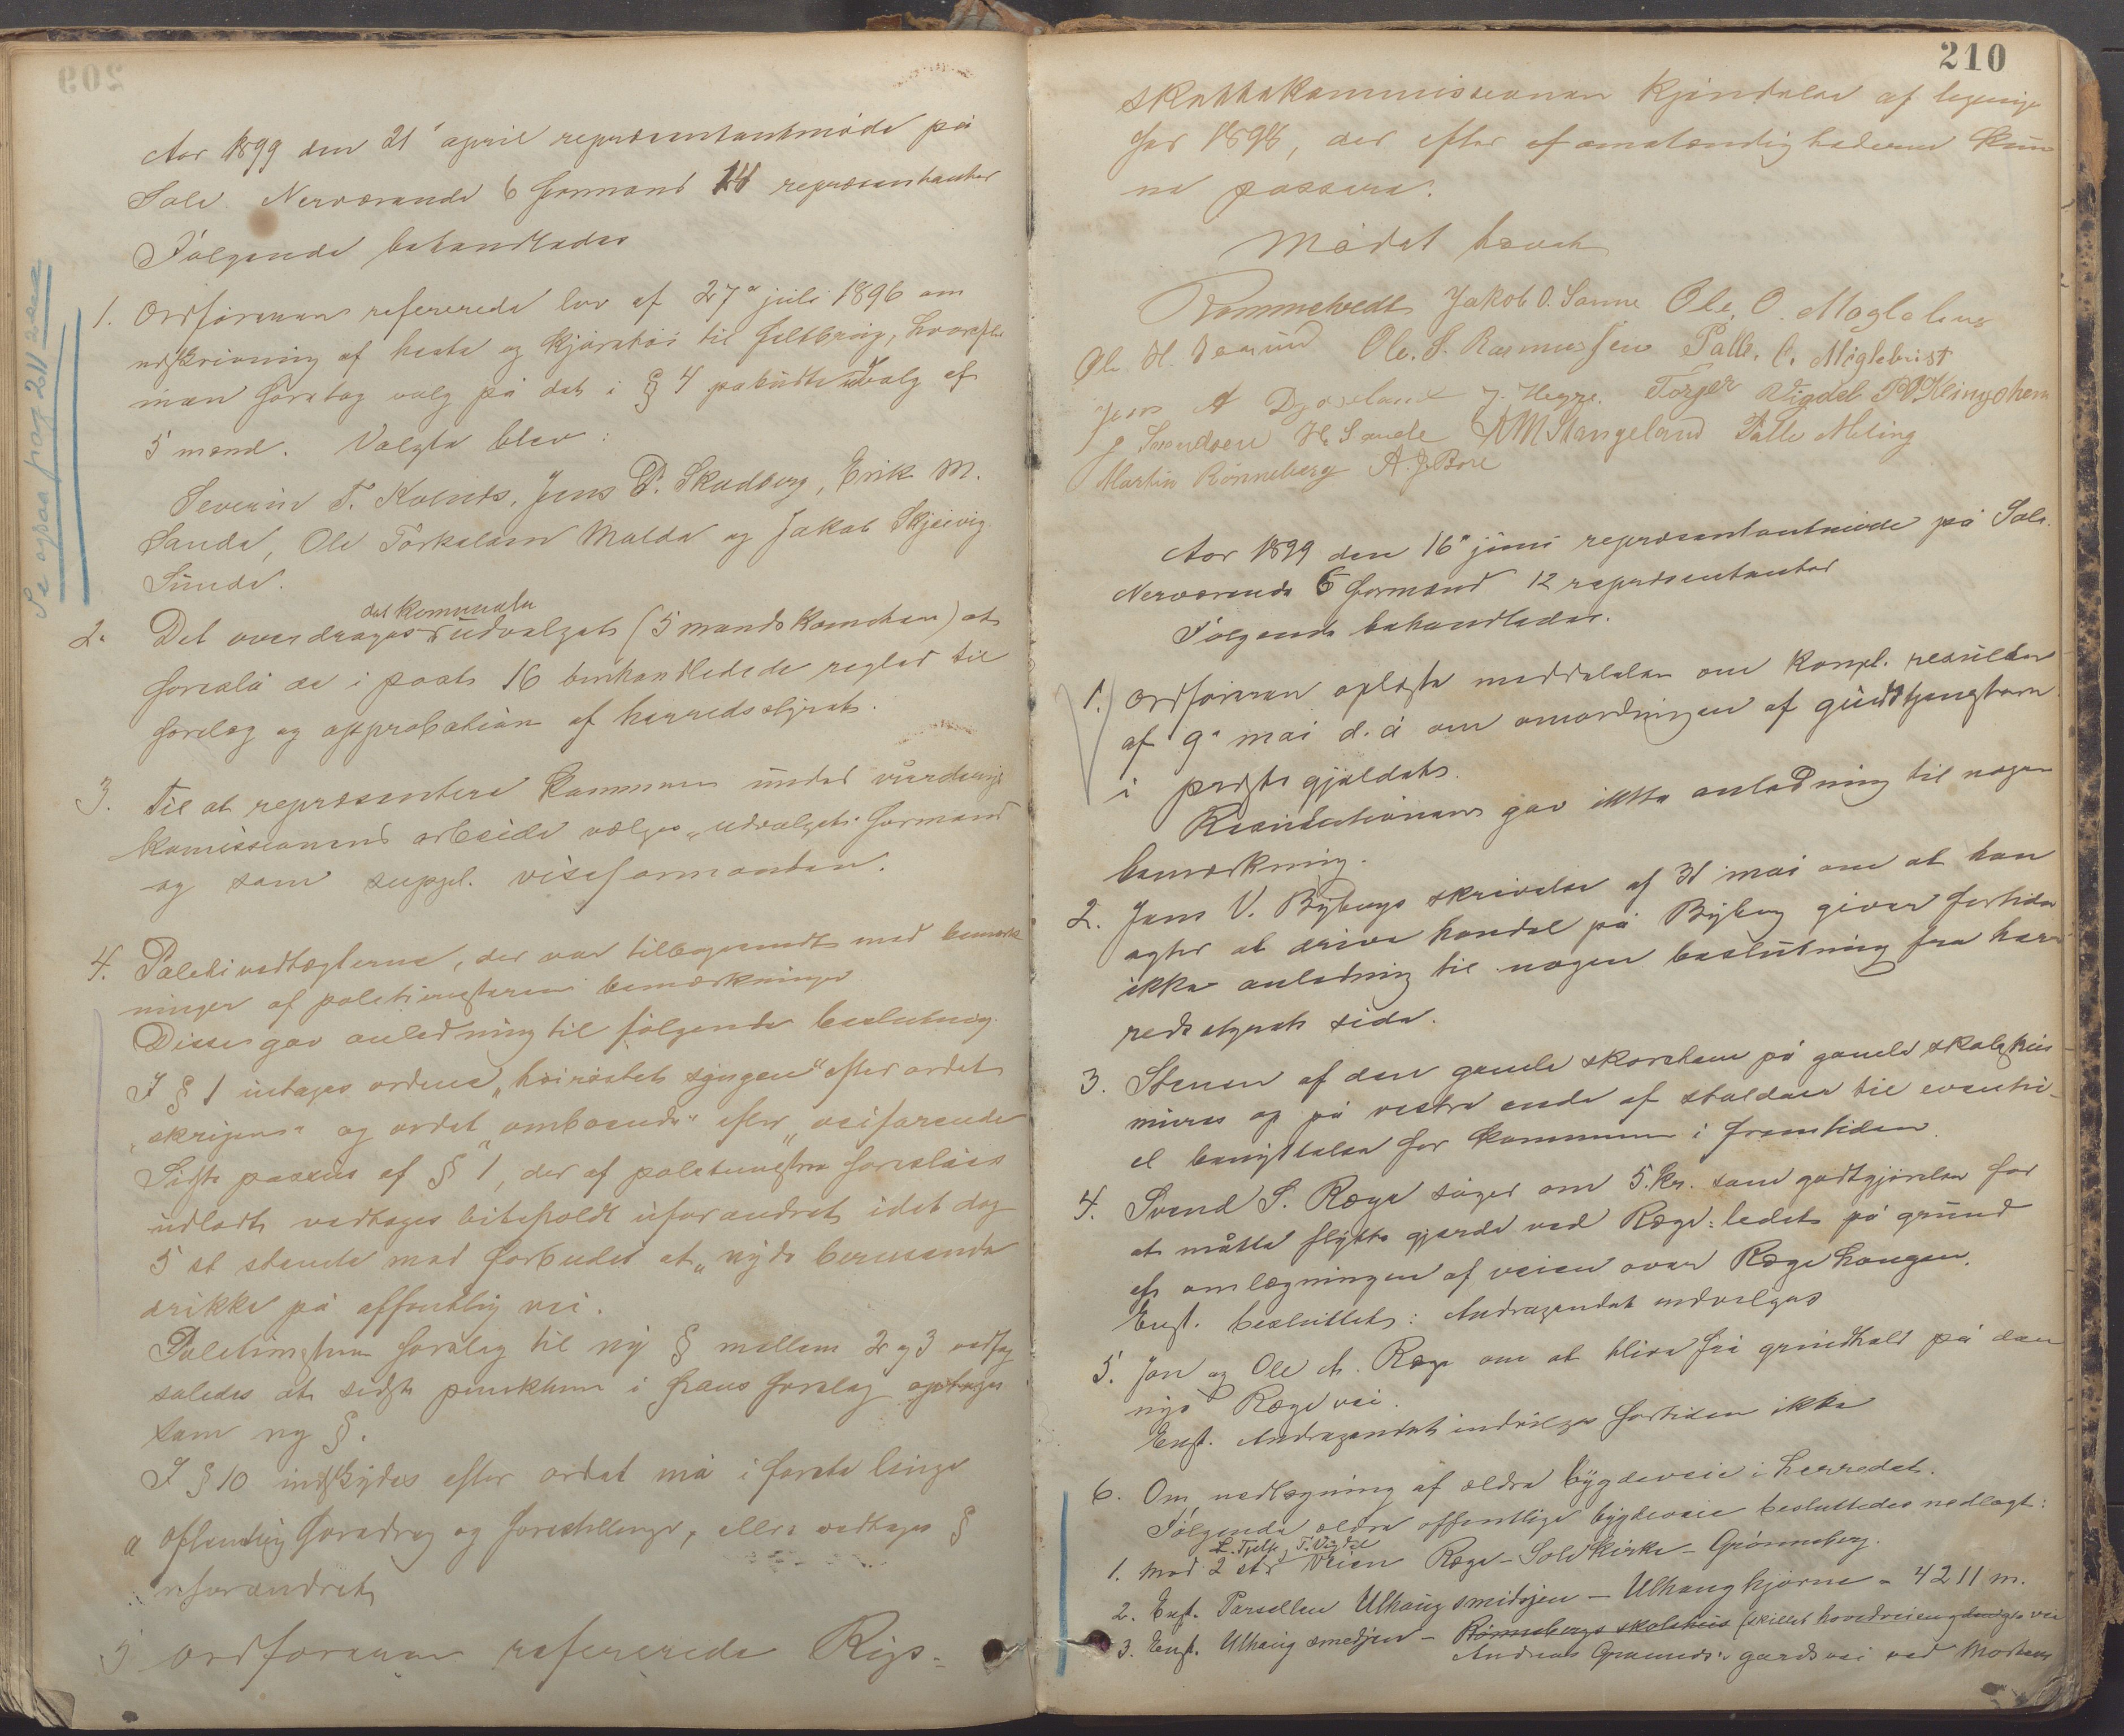 Aar 1899 den 21' april repræsentantmøde på
Sole. Nerværende 6 formænd 14 repræsentanter
Følgende behandledes
1. Ordføreren refererede lov af 27de juli 1896 om
udskrivning af heste og kjøretøi til feltbrug, hvorefter
man foretog valg på det i § 4 påbudte udvalg af
5 mænd. Valgte blev:
Severin T. Kolnes, Jens P. Skadberg, Erik M.
Sande, Ole Torkelsen Malde og Jakob Skjeivig
Sunde.
Se ogsaa pag 211
det kommunale
2. Det overdrages udvalget (5 mands komiteen) at
foreslå de i post 16 benhandlede regler til
forelæg og approbation af herredsstyret.
3. Til at repræsentere kommunen under vurderings
komissionens arbeide vælges „udvalgets formand
og som suppl. viseformanden.
4. Politivedtægterne, der var tilbagesendt med bemærk
ninger af politimesteren bemærkninger
Disse gav anledning til følgende beslutning.
I § 1 indtages ordene „høirøstet syngen" efter ordet
„skrigen" og ordet „ombosende" efter „veifarende
Sidste passus af § 1, der af politimesteren foreslåes
udladt vedtages bibeholdt uforandret idet dog
5 st stande med forbudet at „nyde berusende
drikke på offentlig vei.
Politimesterens forslag til ny § mellem 2 og 3 vedtog
saledes at sidste punktum i hans forslag optages
som ny §.
I § 10 indskydes efter ordet må i første linje
a offentlig foredrag og forestillinger, ellers vedtages §
uforandret
5 ordføreren refererede Rigs-
210
skattekommissionen kjendelse af ligninge
for 1898, der efter af omstændighederne kun
ne passere.
Mødet hævet
Rommetvedt Jakob O. Sømme Ole, O. Magleleus
Ole H. Ole. S. Rasmussen Palle. C. Miglebust
Jens A Dysjeland J. Hegge. Torger Vigdel P. Klingsheim
J Svendsen H Sande K M Stangeland Palle Meling
Martin Rønneberg A. J. Bore
Aar 1899 den 16de juni repræsentantmøde på Sole.
Nerværende 6 formænd 12 repræsentanter
Følgende behandledes.
1. Ordføreren oplæste meddelelse om kongl. resulution
af 9de mai d. å om omordningen af gudstjenesterne
i prestegjeldet.
Resulutionen gav ikke anledning til nogen
bemærkning.
2. Jens V. Bybergs skrivelse af 31 mai om at han
agter at drive handel på Byberg giver fortiden
ikke anledning til nogen beslutning fra her-
redsstyrets side.
3. Stenen af den gamle skorsten på gamle skolehus
mures op på vestre ende af stalden til eventu-
el benyttelse for kommunen i fremtiden.
4. Svend S. Ræge søger om 5.kr. som godtgjørelse for
at måtte flytte gjerde ved Ræge-ledet på grund
af omlægningen af veien over Rægehaugen.
Enst. besluttet: Andragendet indvilges
5. Jon og Ole A. Ræge om at blive fri grindhold på den
nye Rægevei.
Enst. Andragendet indvilges fortiden ikke
6. Om nedlægning af ældre bygdeveie i herredet.
Følgende ældre offentlige bygdeveie besluttedes nedlagt:
L. Tjelta, T. Vigdel
1. Mod 2 str Veien Ræge - Sole kirke - Grønneberg.
2. Enst. Parsellen Ulhaug smidsjen - Ulhaug hjørne - 4211 m.
3. Enst. Ulhaug smedjen - Rønnebergs skolehus (skillet hovedveien
Andreas Grannes's gardsvei ved Mortens